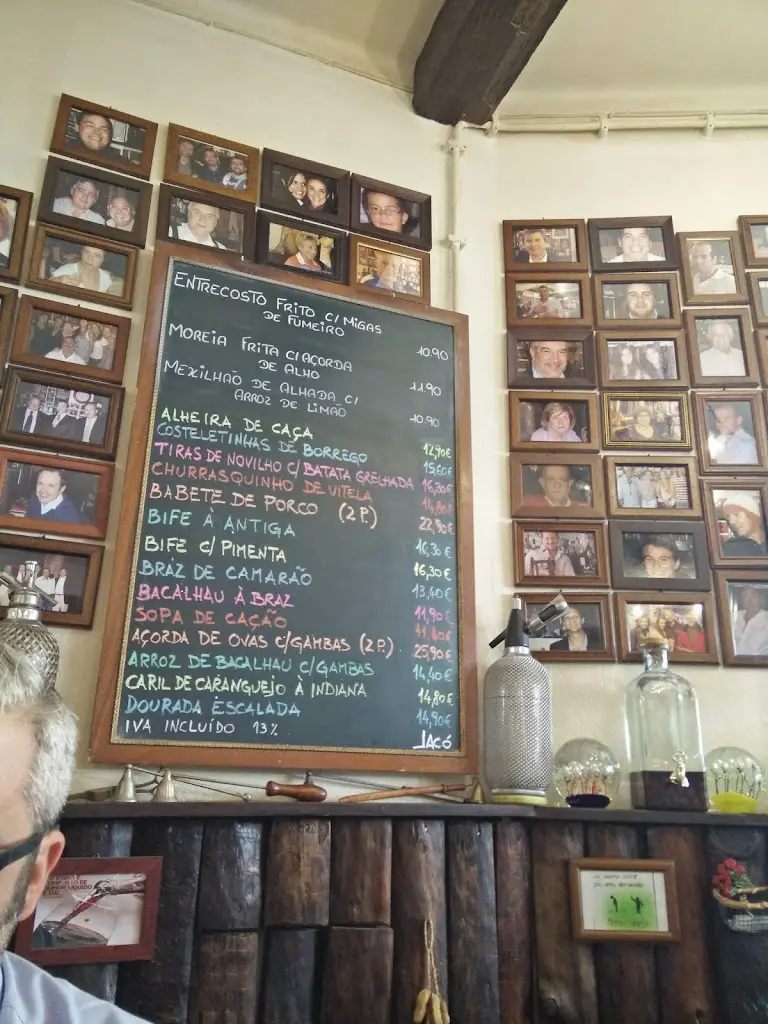 ENTRECOSTO FRITO C/ MIGAS
DE FUMEIRO 10.90
MOREIA FRITA C/AÇORDA
DE ALHO 11.90
MEXILHÃO DE ALHADA C/
ARROZ DE LIMÃO 10.90
ALHEIRA DE CAÇA 12,90€
COSTELETINHAS DE BORREGO 15,60€
TIRAS DE NOVILHO C/BATATA GRELHADA 16,30€
CHURRASQUINHO DE VITELA 14,80€
BABETE DE PORCO (2 P.) 22,90€
BIFE À ANTIGA 16,30€
BIFE C/ PIMENTA 16,30€
BRAZ DE CAMARÃO 13,40€
BACALHAU À BRAZ 11,90€
SOPA DE CAÇÃO 11,40€
AÇORDA DE OVAS C/GAMBAS (2 P.) 25,90€
ARROZ DE BACALHAU C/GAMBAS 14,40€
CARIL DE CARANGUEJO À INDIANA 14,80€
DOURADA ESCALADA 14,90€
IVA INCLUÍDO 13% JACÓ